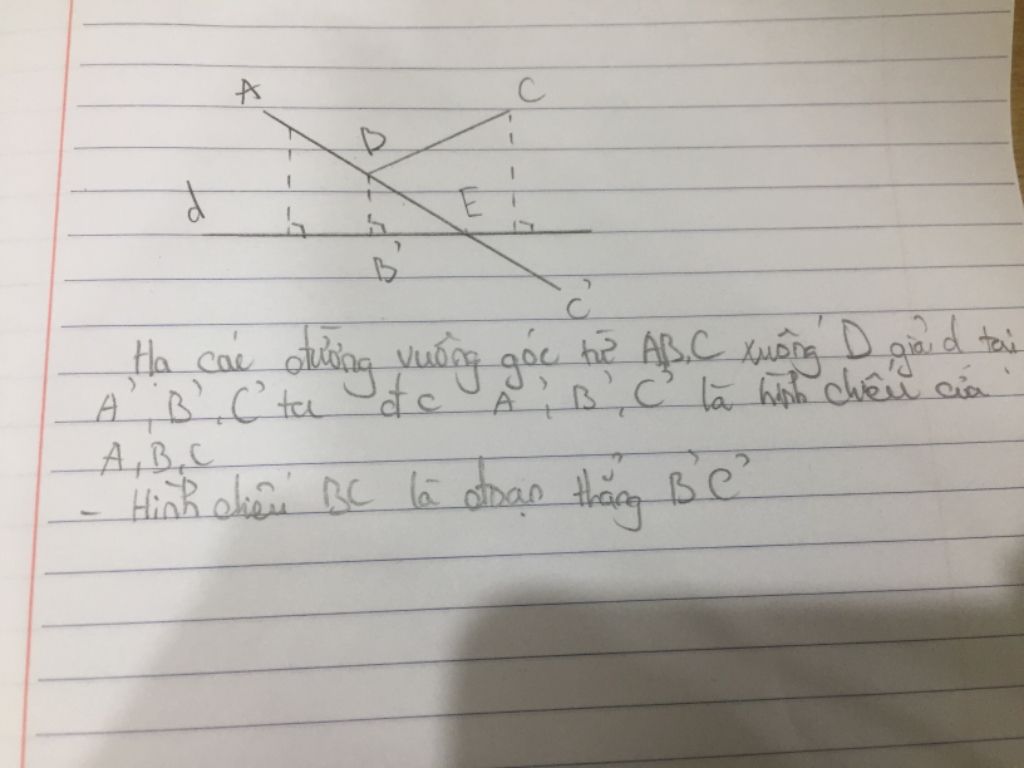 A
C
B
d
E
B'
C'
Hạ các đường vuông góc từ A,B,C xuống D giả d tại
A', B', C' ta đc A', B', C' là hình chiếu của
A, B, C
- Hình chiếu BC là đoạn thẳng B'C'